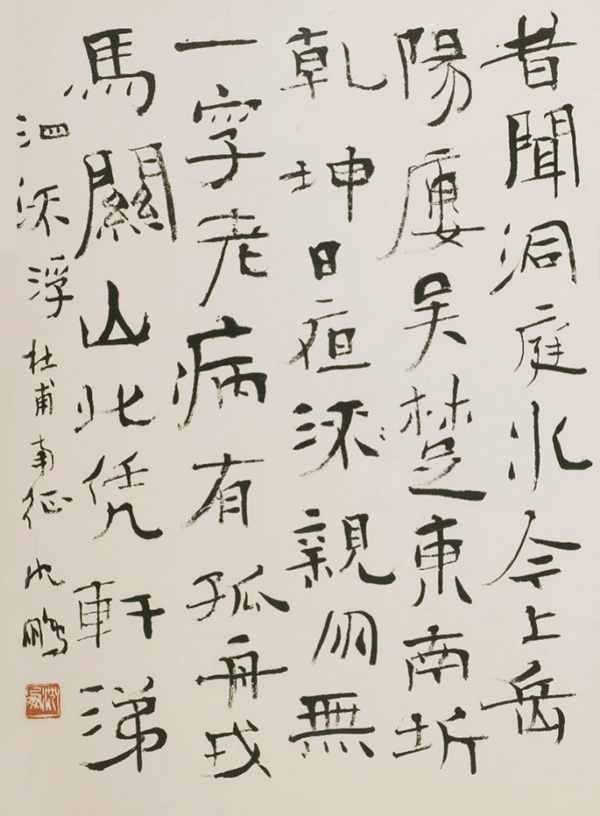 昔聞洞庭水今上岳
陽廔吳楚東南坼
乾坤日亱㳅親朋無
一字老病有孤舟戎
馬關山北凭軒涕
泗㳅浮 杜甫南征 沈鵬